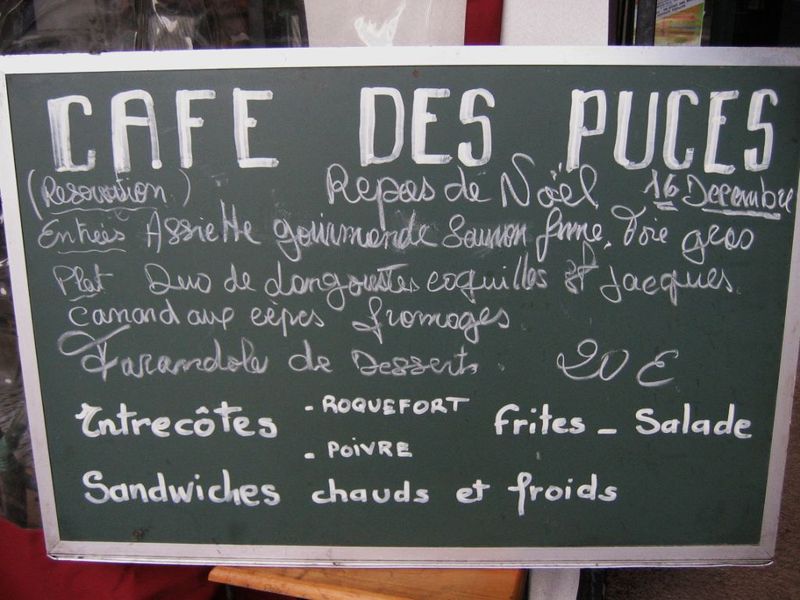 CAFE DES PUCES
(Reservation) Repas de Noël 16 Decembre
Entrées Assiette gourmande Saumon fumé, Foie gras
Plat Duo de Langoustes coquilles St Jacques
Canard aux cèpes fromages
Farandole de Desserts 20 €
Entrecôtes - ROQUEFORT frites - Salade
- POIVRE
Sandwiches chauds et froids